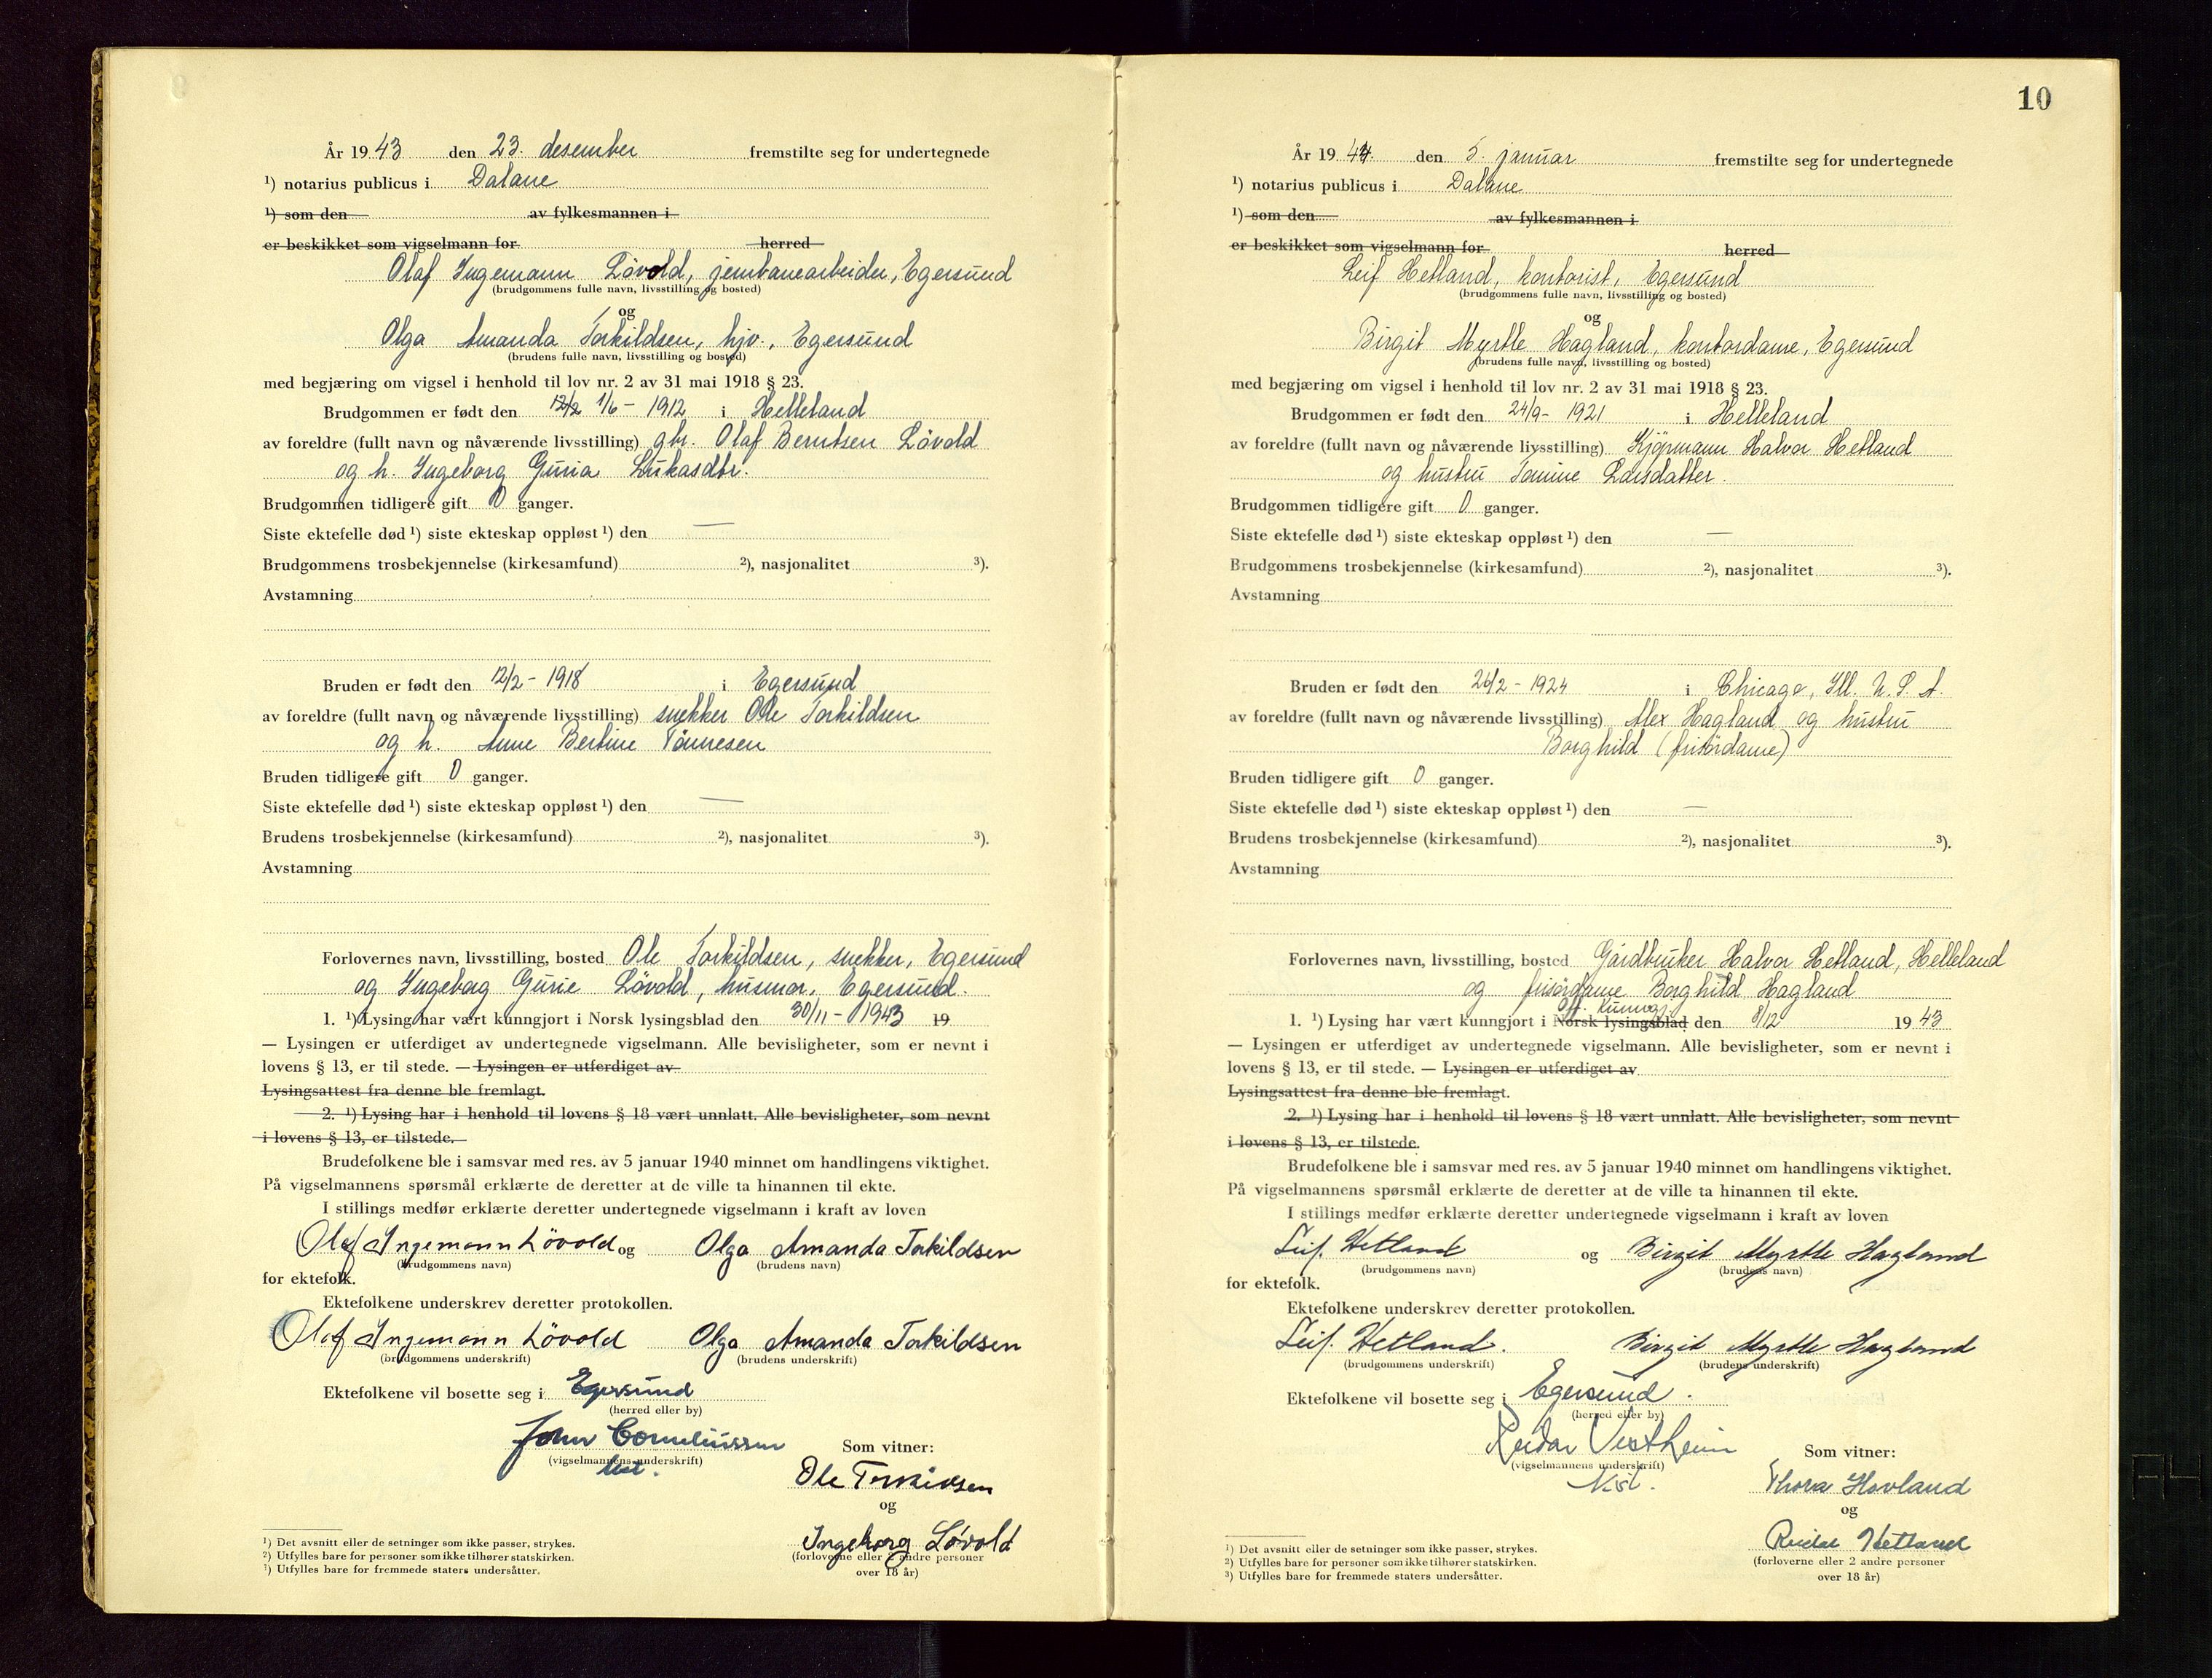 År 1943 den 23. desember fremstilte seg for undertegnede
¹) notarius publicus i Dalane
¹) som den av fylkesmannen i
er beskikket som vigselmann for herred
Olaf Ingemann Lövold, jernbanearbeider, Egersund
(brudgommens fulle navn, livsstilling og bosted)
og
Olga Amanda Torkildsen, hjv., Egersund
(brudens fulle navn, livsstilling og bosted)
med begjæring om vigsel i henhold til lov nr. 2 av 31 mai 1918 § 23.
Brudgommen er født den 12/2 1/6 - 1912 i Helleland
av foreldre (fullt navn og nåværende livsstilling) gbr. Olaf Berntsen Lövold
og h. Ingeborg Guria Lukasdtr.
Brudgommen tidligere gift 0 ganger.
Siste ektefelle død ¹) siste ekteskap oppløst ¹) den —
Brudgommens trosbekjennelse (kirkesamfund) ²), nasjonalitet ³).
Avstamning
Bruden er født den 12/2 - 1918 i Egersund
av foreldre (fullt navn og nåværende livsstilling) snekker Ole Torkildsen
og h. Anne Bertine Tönnesen
Bruden tidligere gift 0 ganger.
Siste ektefelle død ¹) siste ekteskap oppløst ¹) den —
Brudens trosbekjennelse (kirkesamfund) ²), nasjonalitet ³).
Avstamning
Forlovernes navn, livsstilling, bosted Ole Torkildsen, snekker, Egersund
og Ingeborg Gurie Lövold, husmor, Egersund.
1. ¹) Lysing har vært kunngjort i Norsk lysingsblad den 30/11 - 1943 19
— Lysingen er utferdiget av undertegnede vigselmann. Alle bevisligheter, som er nevnt i
lovens § 13, er til stede. — Lysingen er utferdiget av
Lysingsattest fra denne ble fremlagt.
2. ¹) Lysing har i henhold til lovens § 18 vært unnlatt. Alle bevisligheter, som nevnt
i lovens § 13, er tilstede.
Brudefolkene ble i samsvar med res. av 5 januar 1940 minnet om handlingens viktighet.
På vigselmannens spørsmål erklærte de deretter at de ville ta hinannen til ekte.
I stillings medfør erklærte deretter undertegnede vigselmann i kraft av loven
Olaf Ingemann Lövold og Olga Amanda Torkildsen
(brudgommens navn) (brudens navn)
for ektefolk.
Ektefolkene underskrev deretter protokollen.
Olaf Ingemann Lövold Olga Amanda Torkildsen
(brudgommens underskrift) (brudens underskrift)
Ektefolkene vil bosette seg i Egersund
(herred eller by)
John Corneliussen
(vigselmannens underskrift)
Som vitner:
Ole Torkildsen
og
Ingeborg Lövold
(forloverne eller 2 andre personer
over 18 år)
¹) Det avsnitt eller de setninger som ikke passer, strykes.
²) Utfylles bare for personer som ikke tilhører statskirken.
³) Utfylles bare for fremmede staters undersåtter.
10
År 1944. den 5. januar fremstilte seg for undertegnede
¹) notarius publicus i Dalane
¹) som den av fylkesmannen i
er beskikket som vigselmann for herred
Leif Hetland, kontorist, Egersund
(brudgommens fulle navn, livsstilling og bosted)
og
Birgit Myrtle Hagland, kontordame, Egersund
(brudens fulle navn, livsstilling og bosted)
med begjæring om vigsel i henhold til lov nr. 2 av 31 mai 1918 § 23.
Brudgommen er født den 24/9 - 1921 i Helleland
av foreldre (fullt navn og nåværende livsstilling) Kjöpmann Halvor Hetland
og hustru Tomine Larsdatter.
Brudgommen tidligere gift 0 ganger.
Siste ektefelle død ¹) siste ekteskap oppløst ¹) den —
Brudgommens trosbekjennelse (kirkesamfund) ²), nasjonalitet ³).
Avstamning
Bruden er født den 26/2 - 1924 i Chicago, Ill. U. S. A.
av foreldre (fullt navn og nåværende livsstilling) Alex Hagland og hustru
Borghild (frisördame)
Bruden tidligere gift 0 ganger.
Siste ektefelle død ¹) siste ekteskap oppløst ¹) den —
Brudens trosbekjennelse (kirkesamfund) ²), nasjonalitet ³).
Avstamning
Forlovernes navn, livsstilling, bosted Gårdbruker Halvor Hetland, Helleland
og frisördame Borghild Hagland
off. kunng.
1. ¹) Lysing har vært kunngjort i Norsk lysingsblad den 8/12 1943
— Lysingen er utferdiget av undertegnede vigselmann. Alle bevisligheter, som er nevnt i
lovens § 13, er til stede. — Lysingen er utferdiget av
Lysingsattest fra denne ble fremlagt.
2. ¹) Lysing har i henhold til lovens § 18 vært unnlatt. Alle bevisligheter, som nevnt
i lovens § 13, er tilstede.
Brudefolkene ble i samsvar med res. av 5 januar 1940 minnet om handlingens viktighet.
På vigselmannens spørsmål erklærte de deretter at de ville ta hinannen til ekte.
I stillings medfør erklærte deretter undertegnede vigselmann i kraft av loven
Leif Hetland og Birgit Myrtle Hagland
(brudgommens navn) (brudens navn)
for ektefolk.
Ektefolkene underskrev deretter protokollen.
Leif Hetland. Birgit Myrtle Hagland
(brudgommens underskrift) (brudens underskrift)
Ektefolkene vil bosette seg i Egersund.
(herred eller by)
Reidar Vestheim
(vigselmannens underskrift)
Som vitner:
Thora Hovland
og
Reidar Hetland
(forloverne eller 2 andre personer
over 18 år)
¹) Det avsnitt eller de setninger som ikke passer, strykes.
²) Utfylles bare for personer som ikke tilhører statskirken.
³) Utfylles bare for fremmede staters undersåtter.